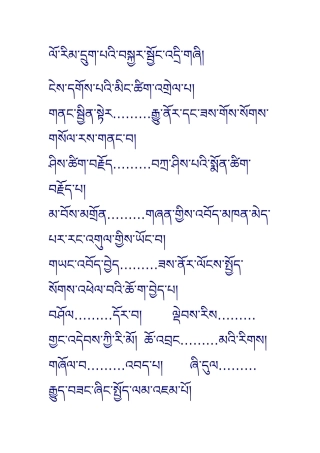 ལོ་རིམ་དྲུག་པའི་བསྐྱར་སྦྱོང་འདྲི་གཞི།
ངེས་དགོས་པའི་མིང་ཚིག་འགྲེལ་པ།
གནང་སྦྱིན་སྟེར.........རྒྱུ་ནོར་དང་ཟས་གོས་སོགས་
གསོལ་རས་གནང་བ།
ཤིས་ཚིག་བརྗོད.........བཀྲ་ཤིས་པའི་སྨོན་ཚིག་
བརྗོད་པ།
མ་བོས་མགྲོན.........གཞན་གྱིས་འབོད་མཁན་མེད་
པར་རང་འགུལ་གྱིས་ཡོང་བ།
གཡང་འབོད་བྱེད.........ཟས་ནོར་ལོངས་སྤྱོད་
སོགས་འཕེལ་བའི་ཆོ་ག་བྱེད་པ།
བཤོལ.........དོར་བ། ལྡེབས་རིས.........
གྱང་འདེབས་ཀྱི་རི་མོ། ཚོ་འབྲང.........མའི་རིགས།
གཞོལ་བ.........འབད་པ། ཞི་དུལ.........
རྒྱུད་བཟང་ཞིང་སྤྱོད་ལམ་འཇམ་པོ།